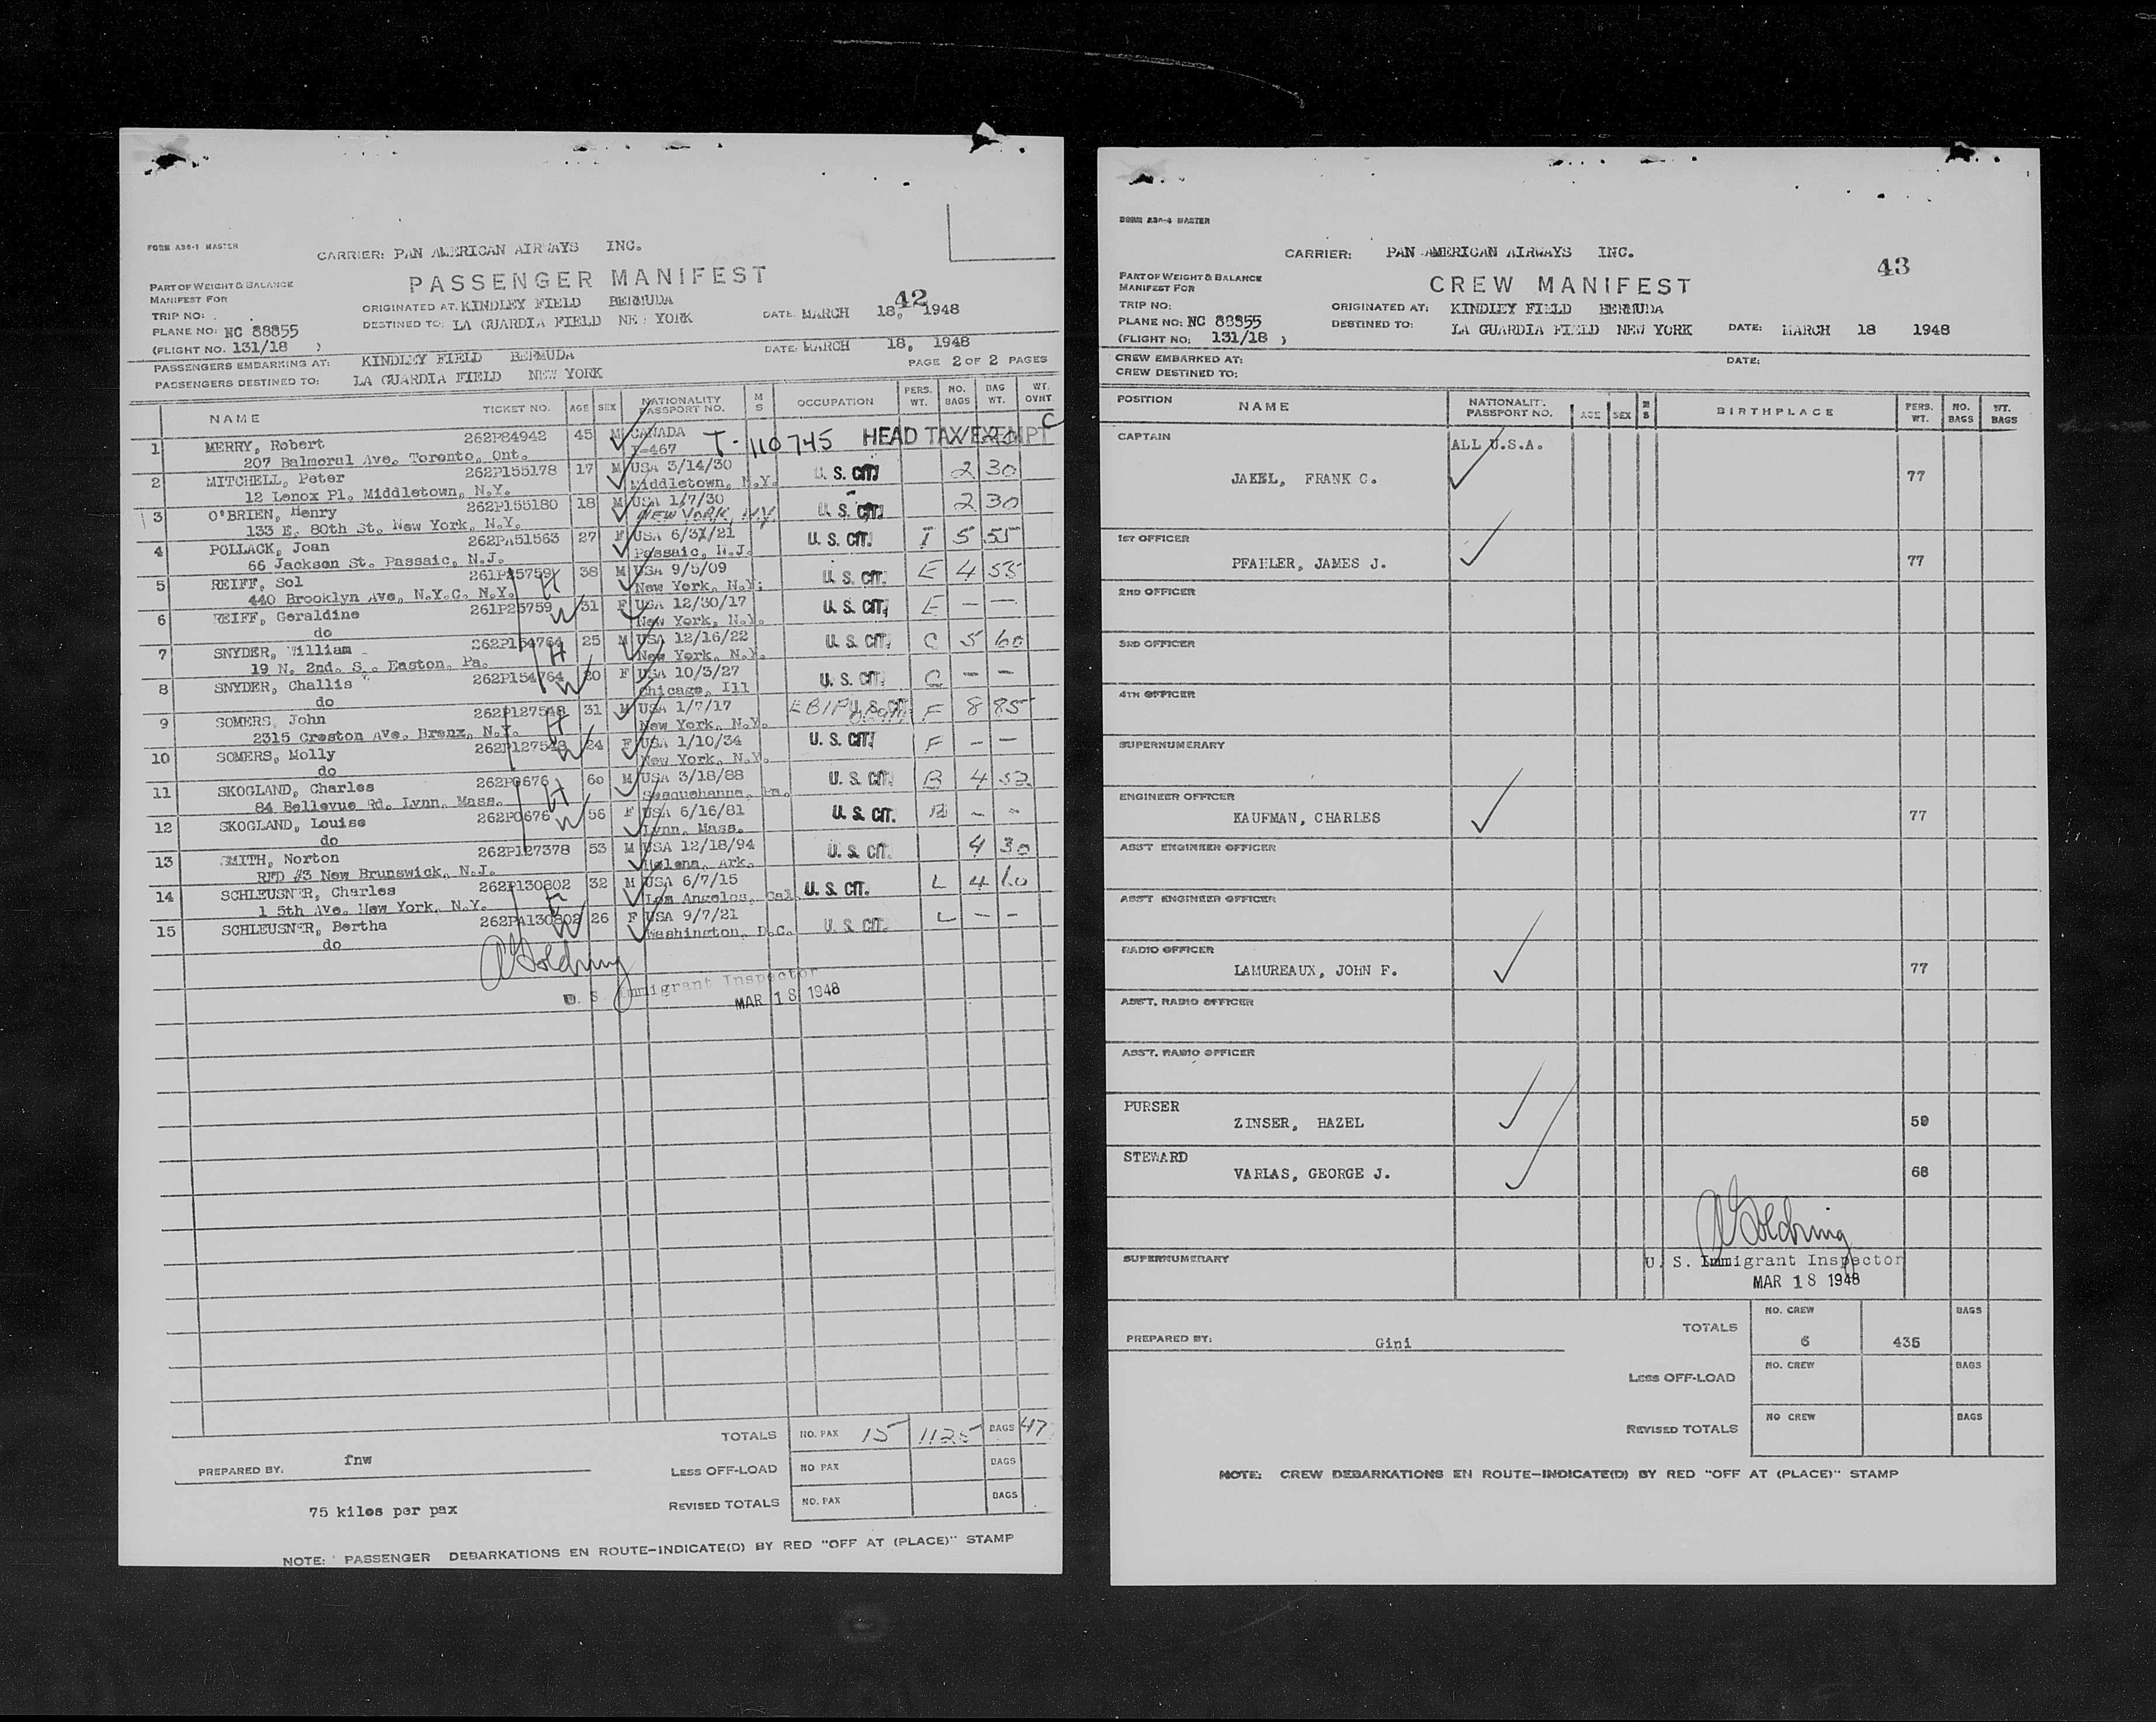 FORM A36-1 MASTER
CARRIER: PAN AMERICAN AIRWAYS INC.
PASSENGER MANIFEST
PART OF WEIGHT & BALANCE
MANIFEST FOR
TRIP NO:
PLANE NO: NC 88855
(FLIGHT NO. 131/18 )
ORIGINATED AT: KINDLEY FIELD BERMUDA
42
DESTINED TO: LA GUARDIA FIELD NEW YORK DATE: MARCH 18, 1948
PASSENGERS EMBARKING AT: KINDLEY FIELD BERMUDA DATE: MARCH 18, 1948
PASSENGERS DESTINED TO: LA GUARDIA FIELD NEW YORK PAGE 2 OF 2 PAGES
NAME TICKET NO. AGE SEX NATIONALITY PASSPORT NO. M S OCCUPATION PERS. WT. NO. BAGS BAG WT. WT. OVNT.
1 MERRY, Robert 262P84942 45 M CANADA T-110745 HEAD TAX EXEMPT C
207 Balmoral Ave. Toronto, Ont. T-467
2 MITCHELL, Peter 262P155178 17 M USA 3/14/30 U. S. CIT. 2 30
12 Lenox Pl. Middletown, N.Y. Middletown, N.Y.
3 O'BRIEN, Henry 262P155180 18 M USA 1/7/30 U. S. CIT. 2 30
133 E. 80th St. New York, N.Y. NEW YORK, N.Y.
4 POLLACK, Joan 262PA51563 27 F USA 6/31/21 U. S. CIT. I 5 55
66 Jackson St. Passaic, N.J. Passaic, N.J.
5 REIFF, Sol 261P25759 H 38 M USA 9/5/09 U. S. CIT. E 4 55
440 Brooklyn Ave, N.Y.C. N.Y. New York, N.Y.
6 REIFF, Geraldine 261P25759 W 31 F USA 12/30/17 U. S. CIT. E — —
do New York, N.Y.
7 SNYDER, William 262P154764 H 25 M USA 12/16/22 U. S. CIT. C 5 60
19 N. 2nd. S. Easton, Pa. New York, N.Y.
8 SNYDER, Challis 262P154764 W 20 F USA 10/3/27 U. S. CIT. C — —
do Chicago, Ill
9 SOMERS, John 262P127548 H 31 M USA 1/7/17 U. S. CIT. F 8 85
2315 Creston Ave. Bronx, N.Y. New York, N.Y.
10 SOMERS, Molly 262P127548 W 24 F USA 1/10/34 U. S. CIT. F — —
do New York, N.Y.
11 SKOGLAND, Charles 262P0676 H 60 M USA 3/18/88 U. S. CIT. B 4 52
84 Bellevue Rd. Lynn, Mass. Susquehanna, Pa.
12 SKOGLAND, Louise 262P0676 W 56 F USA 6/16/81 U. S. CIT. B — —
do Lynn, Mass.
13 SMITH, Norton 262P127378 53 M USA 12/18/94 U. S. CIT. 4 30
RFD #3 New Brunswick, N.J. Helena, Ark.
14 SCHLEUSNER, Charles 262P130802 H 32 M USA 6/7/15 U. S. CIT. L 4 60
1 5th Ave. New York, N.Y. Los Angeles, Cal.
15 SCHLEUSNER, Bertha 262PA130802 W 26 F USA 9/7/21 U. S. CIT. L — —
do Washington, D.C.
A Goldring
U. S. Immigrant Inspector
MAR 18 1948
TOTALS NO. PAX 15 1125 BAGS 47
PREPARED BY. fnw
LESS OFF-LOAD NO PAX BAGS
REVISED TOTALS NO. PAX BAGS
75 kilos per pax
NOTE: PASSENGER DEBARKATIONS EN ROUTE-INDICATE(D) BY RED "OFF AT (PLACE)" STAMP
FORM A36-4 MASTER
CARRIER: PAN AMERICAN AIRWAYS INC.
43
CREW MANIFEST
PART OF WEIGHT & BALANCE
MANIFEST FOR
TRIP NO:
PLANE NO: NC 88855
(FLIGHT NO: 131/18 )
ORIGINATED AT: KINDLEY FIELD BERMUDA
DESTINED TO: LA GUARDIA FIELD NEW YORK DATE: MARCH 18 1948
CREW EMBARKED AT: DATE:
CREW DESTINED TO:
POSITION NAME NATIONALITY PASSPORT NO. AGE SEX M S BIRTHPLACE PERS. WT. NO. BAGS WT. BAGS
CAPTAIN ALL U.S.A.
JAKEL, FRANK C. 77
1ST OFFICER
PFAHLER, JAMES J. 77
2ND OFFICER
3RD OFFICER
4TH OFFICER
SUPERNUMERARY
ENGINEER OFFICER
KAUFMAN, CHARLES 77
ASS'T ENGINEER OFFICER
ASS'T ENGINEER OFFICER
RADIO OFFICER
LAMUREAUX, JOHN F. 77
ASS'T. RADIO OFFICER
ASS'T. RADIO OFFICER
PURSER
ZINSER, HAZEL 59
STEWARD
VARLAS, GEORGE J. 68
A Goldring
SUPERNUMERARY
U. S. Immigrant Inspector
MAR 18 1948
TOTALS NO. CREW 6 435 BAGS
PREPARED BY: Gini
LESS OFF-LOAD NO. CREW BAGS
REVISED TOTALS NO CREW BAGS
NOTE: CREW DEBARKATIONS EN ROUTE-INDICATE(D) BY RED "OFF AT (PLACE)" STAMP